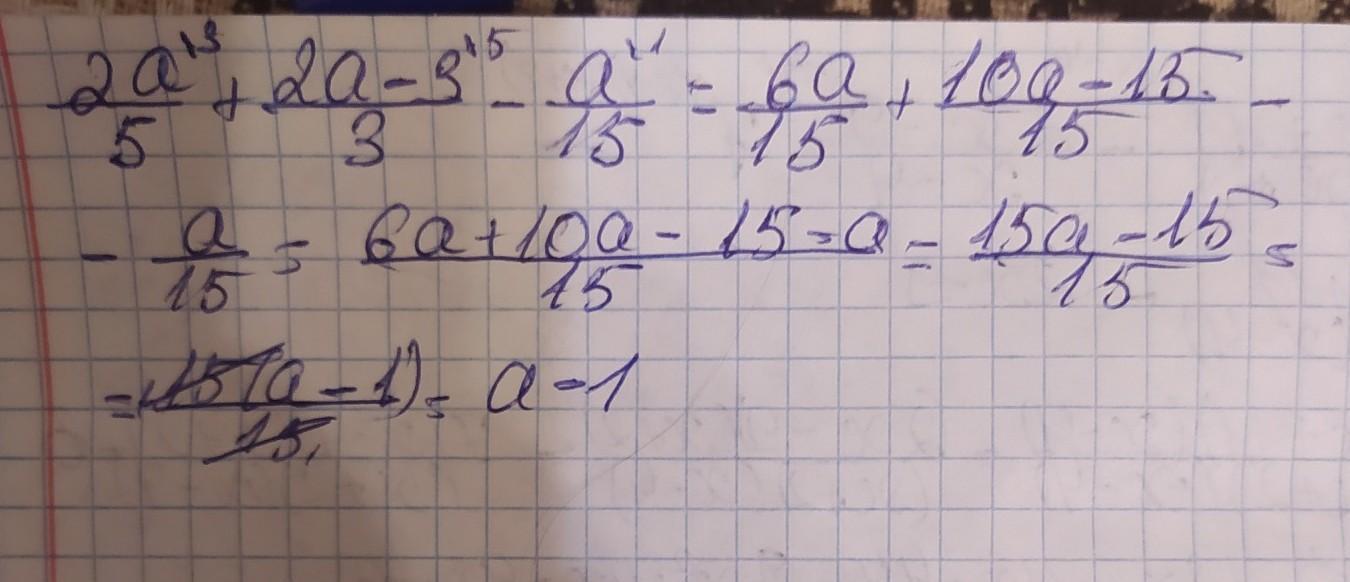 2a^{\3}/5 + 2a-3^{\5}/3 - a^{\1}/15 = 6a/15 + 10a-15/15 -
- a/15 = 6a+10a-15-a/15 = 15a-15/15 =
= 15(a-1)/15 = a-1